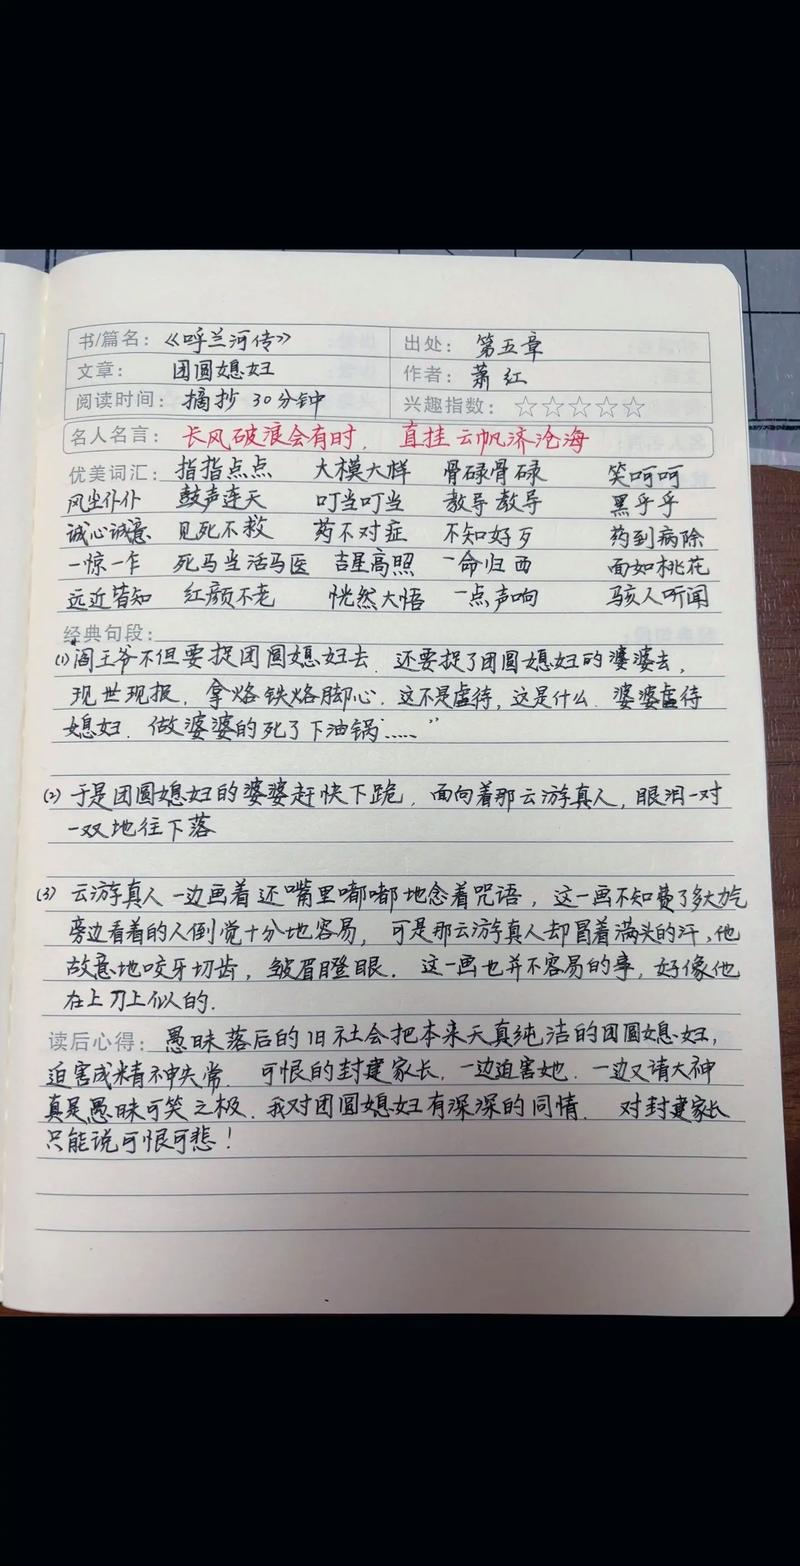 书/篇名： 《呼兰河传》 出处： 第五章
文章： 团圆媳妇 作者： 萧红
阅读时间： 摘抄30分钟 兴趣指数：☆☆☆☆☆
名人名言： 长风破浪会有时， 直挂云帆济沧海
优美词汇： 指指点点 大模大样 骨碌骨碌 笑呵呵
风尘仆仆 鼓声连天 叮当叮当 教导教导 黑乎乎
诚心诚意 见死不救 药不对症 不知好歹 药到病除
一惊一乍 死马当活马医 吉星高照 一命归西 面如桃花
远近皆知 红颜不老 恍然大悟 一点声响 骇人听闻
经典句段：
(1) 阎王爷不但要捉团圆媳妇去，还要捉了团圆媳妇的婆婆去，
现世现报，拿烙铁烙脚心．这不是虐待，这是什么．婆婆虐待
媳妇．做婆婆的死了下油锅……”
(2) 于是团圆媳妇的婆婆赶快下跪，面向着那云游真人，眼泪一对
一双地往下落
(3) 云游真人一边画着还嘴里嘟嘟地念着咒语，这一画不知费了多大力气
旁边看着的人倒觉十分地容易，可是那云游真人却冒着满头的汗，他
故意地咬牙切齿，皱眉瞪眼．这一画也并不容易的事，好像他
在上刀上似的．
读后心得： 愚昧落后的旧社会把本来天真纯洁的团圆媳妇，
迫害成精神失常．可恨的封建家长，一边迫害她．一边又请大神
真是愚昧可笑之极．我对团圆媳妇有深深的同情．对封建家长
只能说可恨可悲！